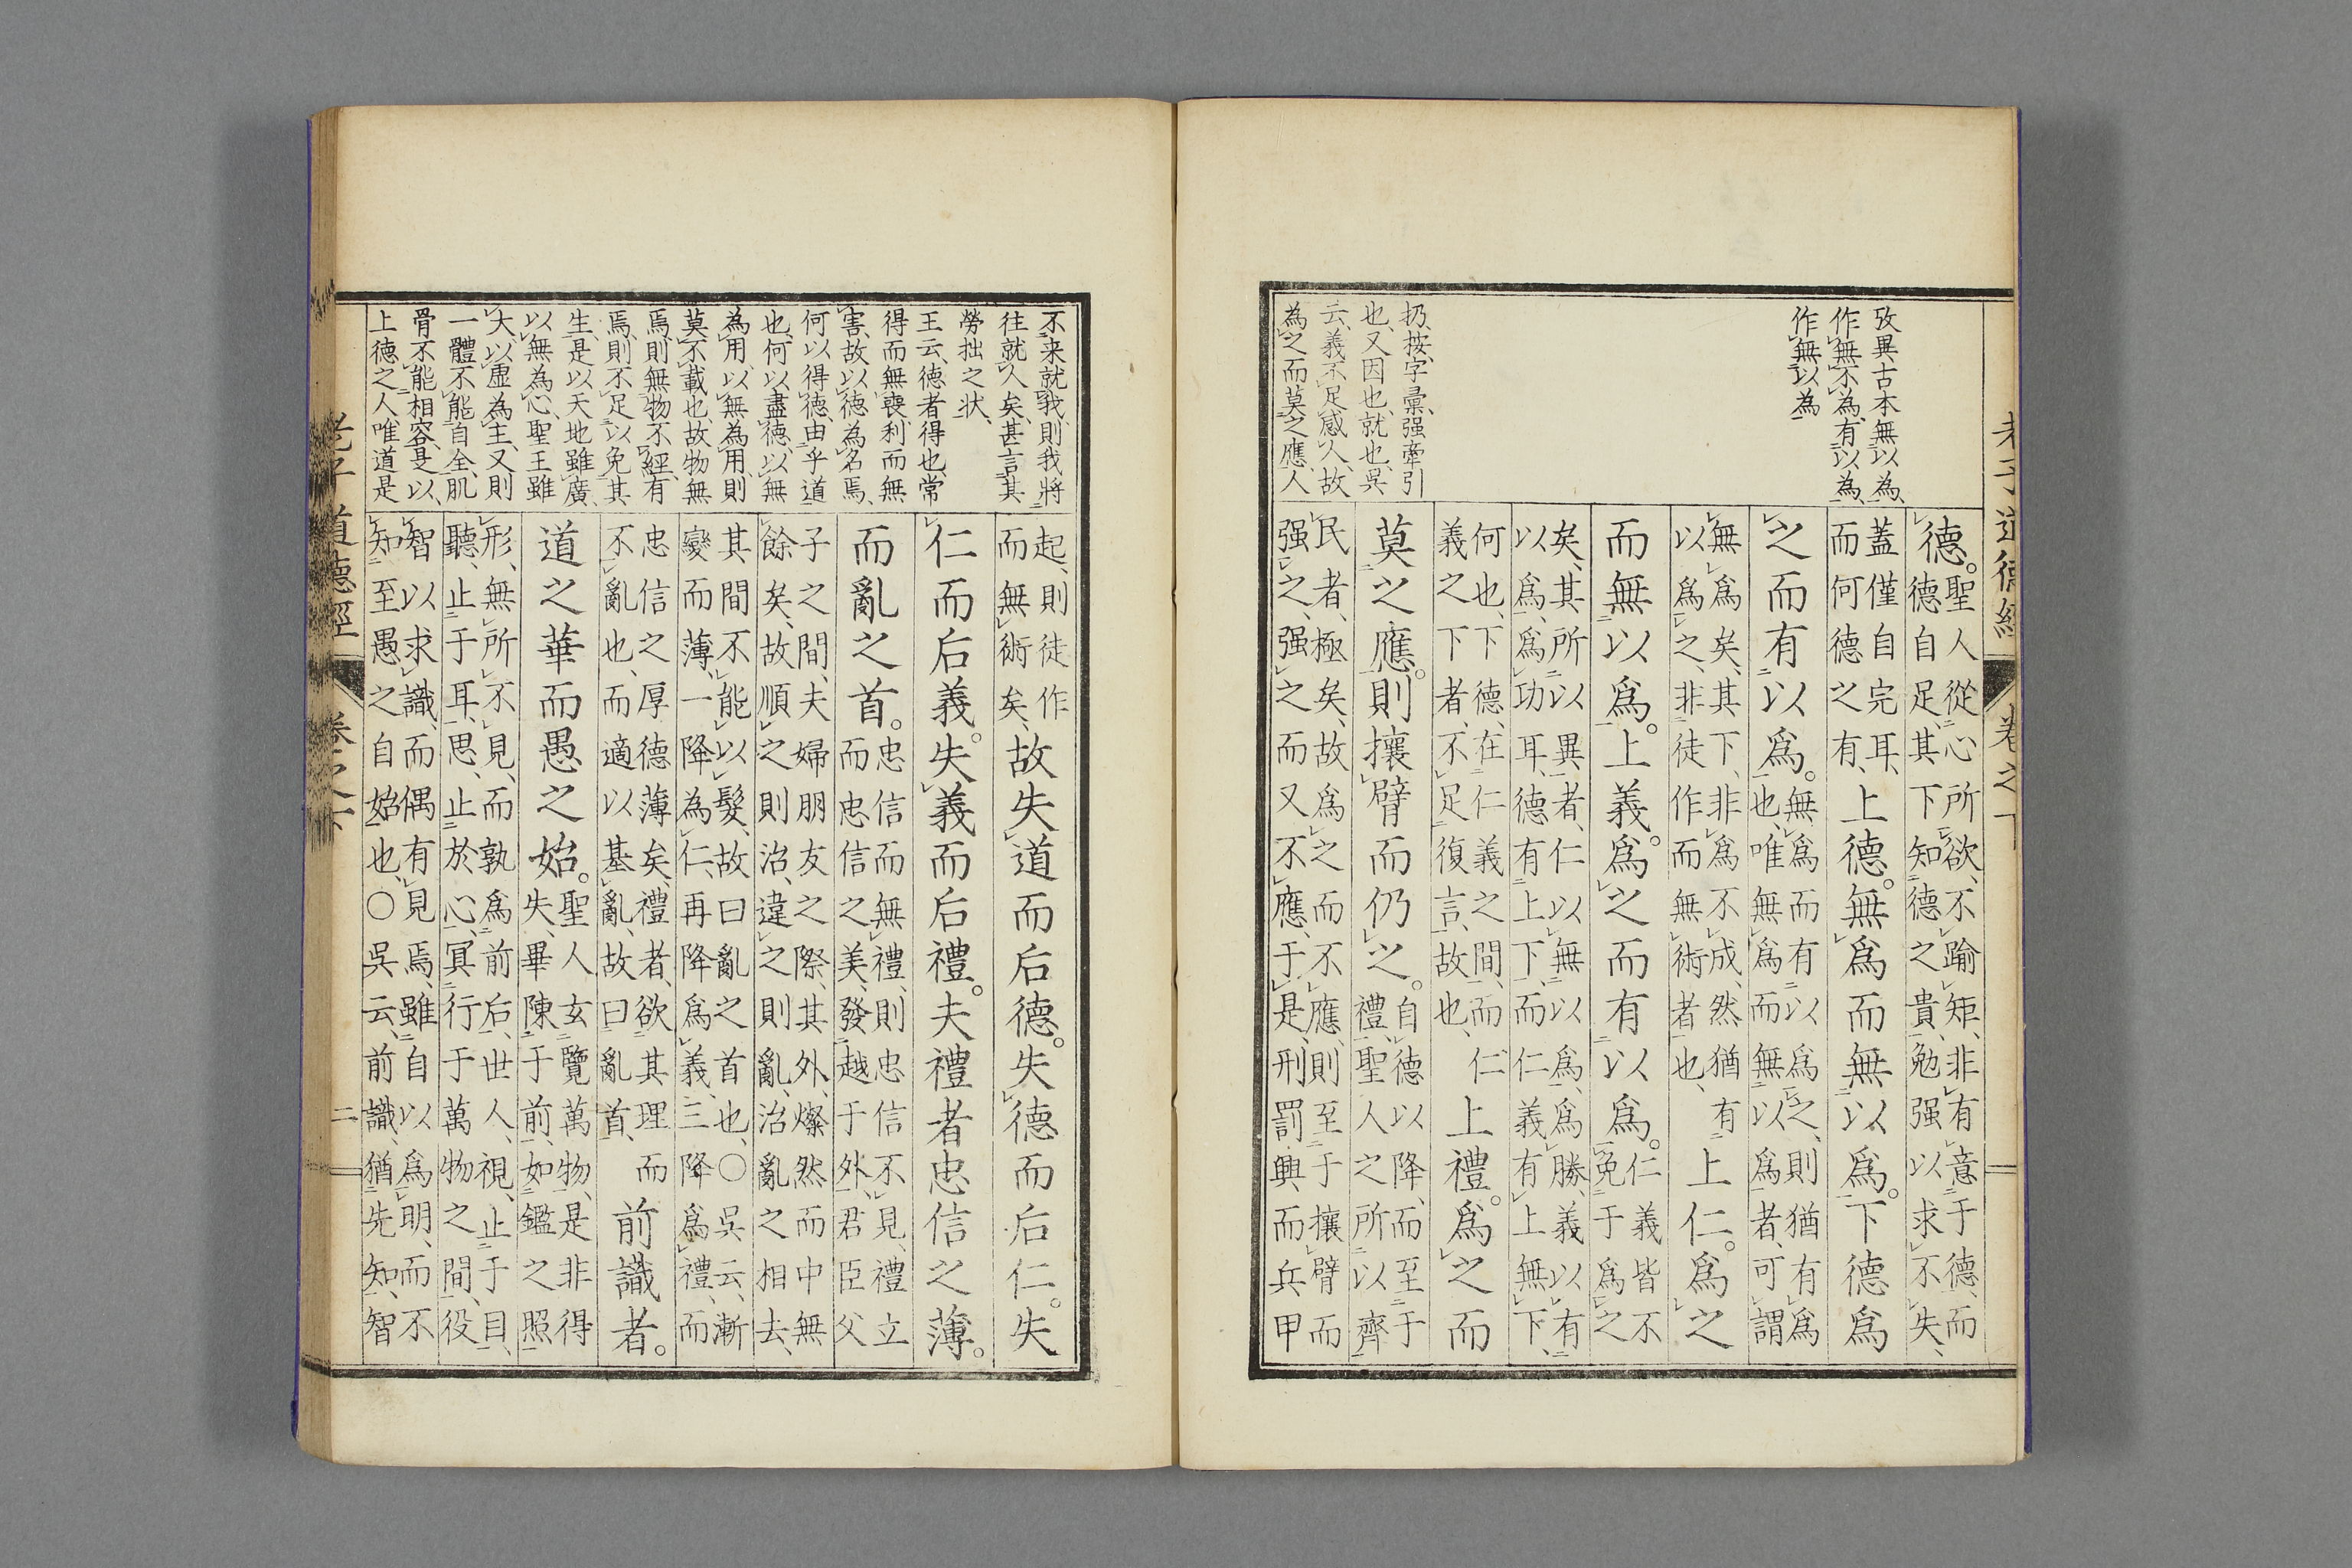 攷異、古本無以為、
作無不為、有以為、
作無以為
扔、按、字彙、强牽引
也、又因也、就也、吳
云、義不足感人、故
為之而莫之應、人
德。聖人從心所欲、不踰矩、非有意于德、而
德自足、其下知德之貴、勉强以求不失、
蓋僅自完耳、
而何德之有、上德。無爲而無以爲。下德爲
之而有以爲。無爲而有以爲之、則猶有爲
也、唯無爲而無以爲者、可謂
無爲矣、其下、非爲不成、然猶有
以爲之、非徒作而無術者也、上仁。爲之
而無以爲。上義。爲之而有以爲。仁義皆不
免于爲之
矣、其所以異者、仁以無以爲、爲勝、義以有
以爲、爲功耳、德有上下、而仁義有上無下、
何也、下德、在仁義之間、而仁
義之下者、不足復言、故也、上禮。爲之而
莫之應。則攘臂而仍之。自德以降、而至于
禮、聖人之所以齊
民者、極矣、故爲之而不應、則至于攘臂而
强之、强之而又不應、于是刑罰興、而兵甲
不来就我、則我將
往就人矣、甚言其
勞拙之状、
王云、德者得也、常
得而無喪、利而無
害、故以德為名焉、
何以得德、由乎道
也、何以盡德、以無
為用、以無為用、則
莫不載也、故物無
焉、則無物不經、有
焉、則不足以免其
生、是以天地雖廣、
以無為心、聖王雖
大、以虛為主、又則
一體不能自全、肌
骨不能相容、是以、
上德之人、唯道是
起、則徒作
而無術矣、故失道而后德。失德而后仁。失
仁而后義。失義而后禮。夫禮者忠信之薄。
而亂之首。忠信而無禮、則忠信不見、禮立
而忠信之美、發越于外、君臣父
子之間、夫婦朋友之際、其外、燦然而中無
餘矣、故順之則治、違之則亂、治亂之相去、
其間不能以髮、故曰亂之首也、〇吳云、漸
變而薄、一降為仁、再降爲義、三降爲禮、而
忠信之厚德薄矣、禮者、欲其理而
不亂也、而適以基亂、故曰亂首、前識者。
道之華而愚之始。聖人玄覽萬物、是非得
失、畢陳于前、如鑑之照
形、無所不見、而孰爲前后、世人、視、止于目、
聽、止于耳、思、止於心、冥行于萬物之間、役
智以求識、而偶有見焉、雖自以爲明、而不
知至愚之自始也、〇吳云、前識、猶先知、智
老子道德經 卷之下 二